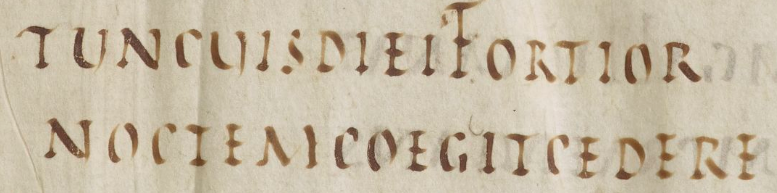 TUNCUISDIEIFORTIOR
NOCTEMCOEGITCEDERE